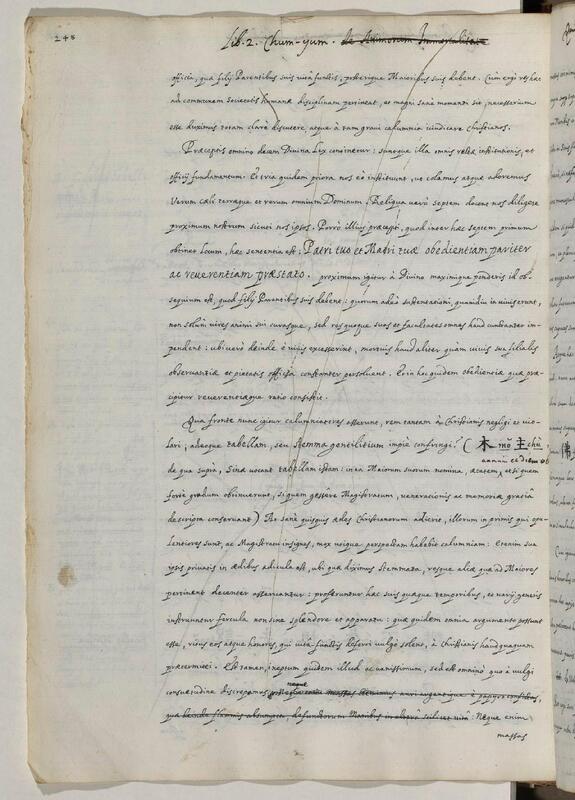 248
Lib. 2. Chum-yum. de Animorum Immortalitate
officia, quæ filij Parentibus suis vitâ functis, posterique Maioribus suis debent. Cùm ergò res hæc
ad communem societatis humanæ disciplinam pertineat, et magni sanè momenti sit, necessarium
esse duximus totam clarè discutere, atque à tam gravi calumnia vindicare Christianos.
Præceptis omnino decem Divina Lex continetur: suntque illa omnis rectæ institutionis, et
officij fundamentum. Et tria quidem priora nos eò instituunt, ut colamus atque adoremus
Verum cæli terræque et rerum omnium Dominum. Reliqua verò septem docent nos diligere
proximum nostrum sicuti nos ipsos. Porrò illius præcepti, quod inter hæc septem primum
obtinet locum, hæc sententia est: Patri tuo et Matri tuæ obedientiam pariter
ac reverentiam præstato. proximum igitur à Divino maximique ponderis id ob-
sequium est, quod filij Parentibus suis debent: quorum adeò sustentationi, quamdiu in vivis erunt,
non solùm vires animi sui curasque, sed res quoque suas et facultates omnes haud cunctanter im-
pendent: ubi verò deinde è vivis excesserint, mortuis haud aliter quàm vivis sua filialis
observantiæ et pietatis officia constanter persolvent. Et in hac quidem obedientia quæ præ-
cipitur reverentiaque ratio consistit.
Quâ fronte nunc igitur calumniatores asserunt, rem tantam à Christianis negligi et vio-
lari; adeoque tabellam, seu stemma gentilitium impiè confringi? (木 mŏ 主 chù,
annum et diem ob
de qua suprà, Sinæ vocant tabellam istam: in ea Maiorum suorum nomina, ætatem, et si quem
fortè gradum obtinuerunt, si quem gessêre Magistratum, venerationis ac memoriæ gratiâ
descripta conservant) At sanè quisquis ædes Christianorum adierit, illorum in primis qui opu-
lentiores sunt, ac Magistratu insignes, mox utique perspectam habebit calumniam: Etenim sua
ipsis privatis in ædibus ædicula est, ubi quæ diximus stemmata, resque aliæ quæ ad Maiores
pertinent decenter asservantur: proferuntur hæc suis quæque temporibus, et varij generis
instruuntur fercula non sine splendore et apparatu: quæ quidem omnia argumento possunt
esse, ritus eos atque honores, qui vitâ functis deferri vulgò solent, à Christianis haudquaquam
prætermitti. Est tamen, ineptum quidem illud ac vanissimum, sed est omninò quo à vulgi
consuetudine discrepamus neque massas auri argentique è papyro
quæ deinde flammis absumptæ, defunctorum Manibus in alterâ scilicet vitâ: Neque enim
massas